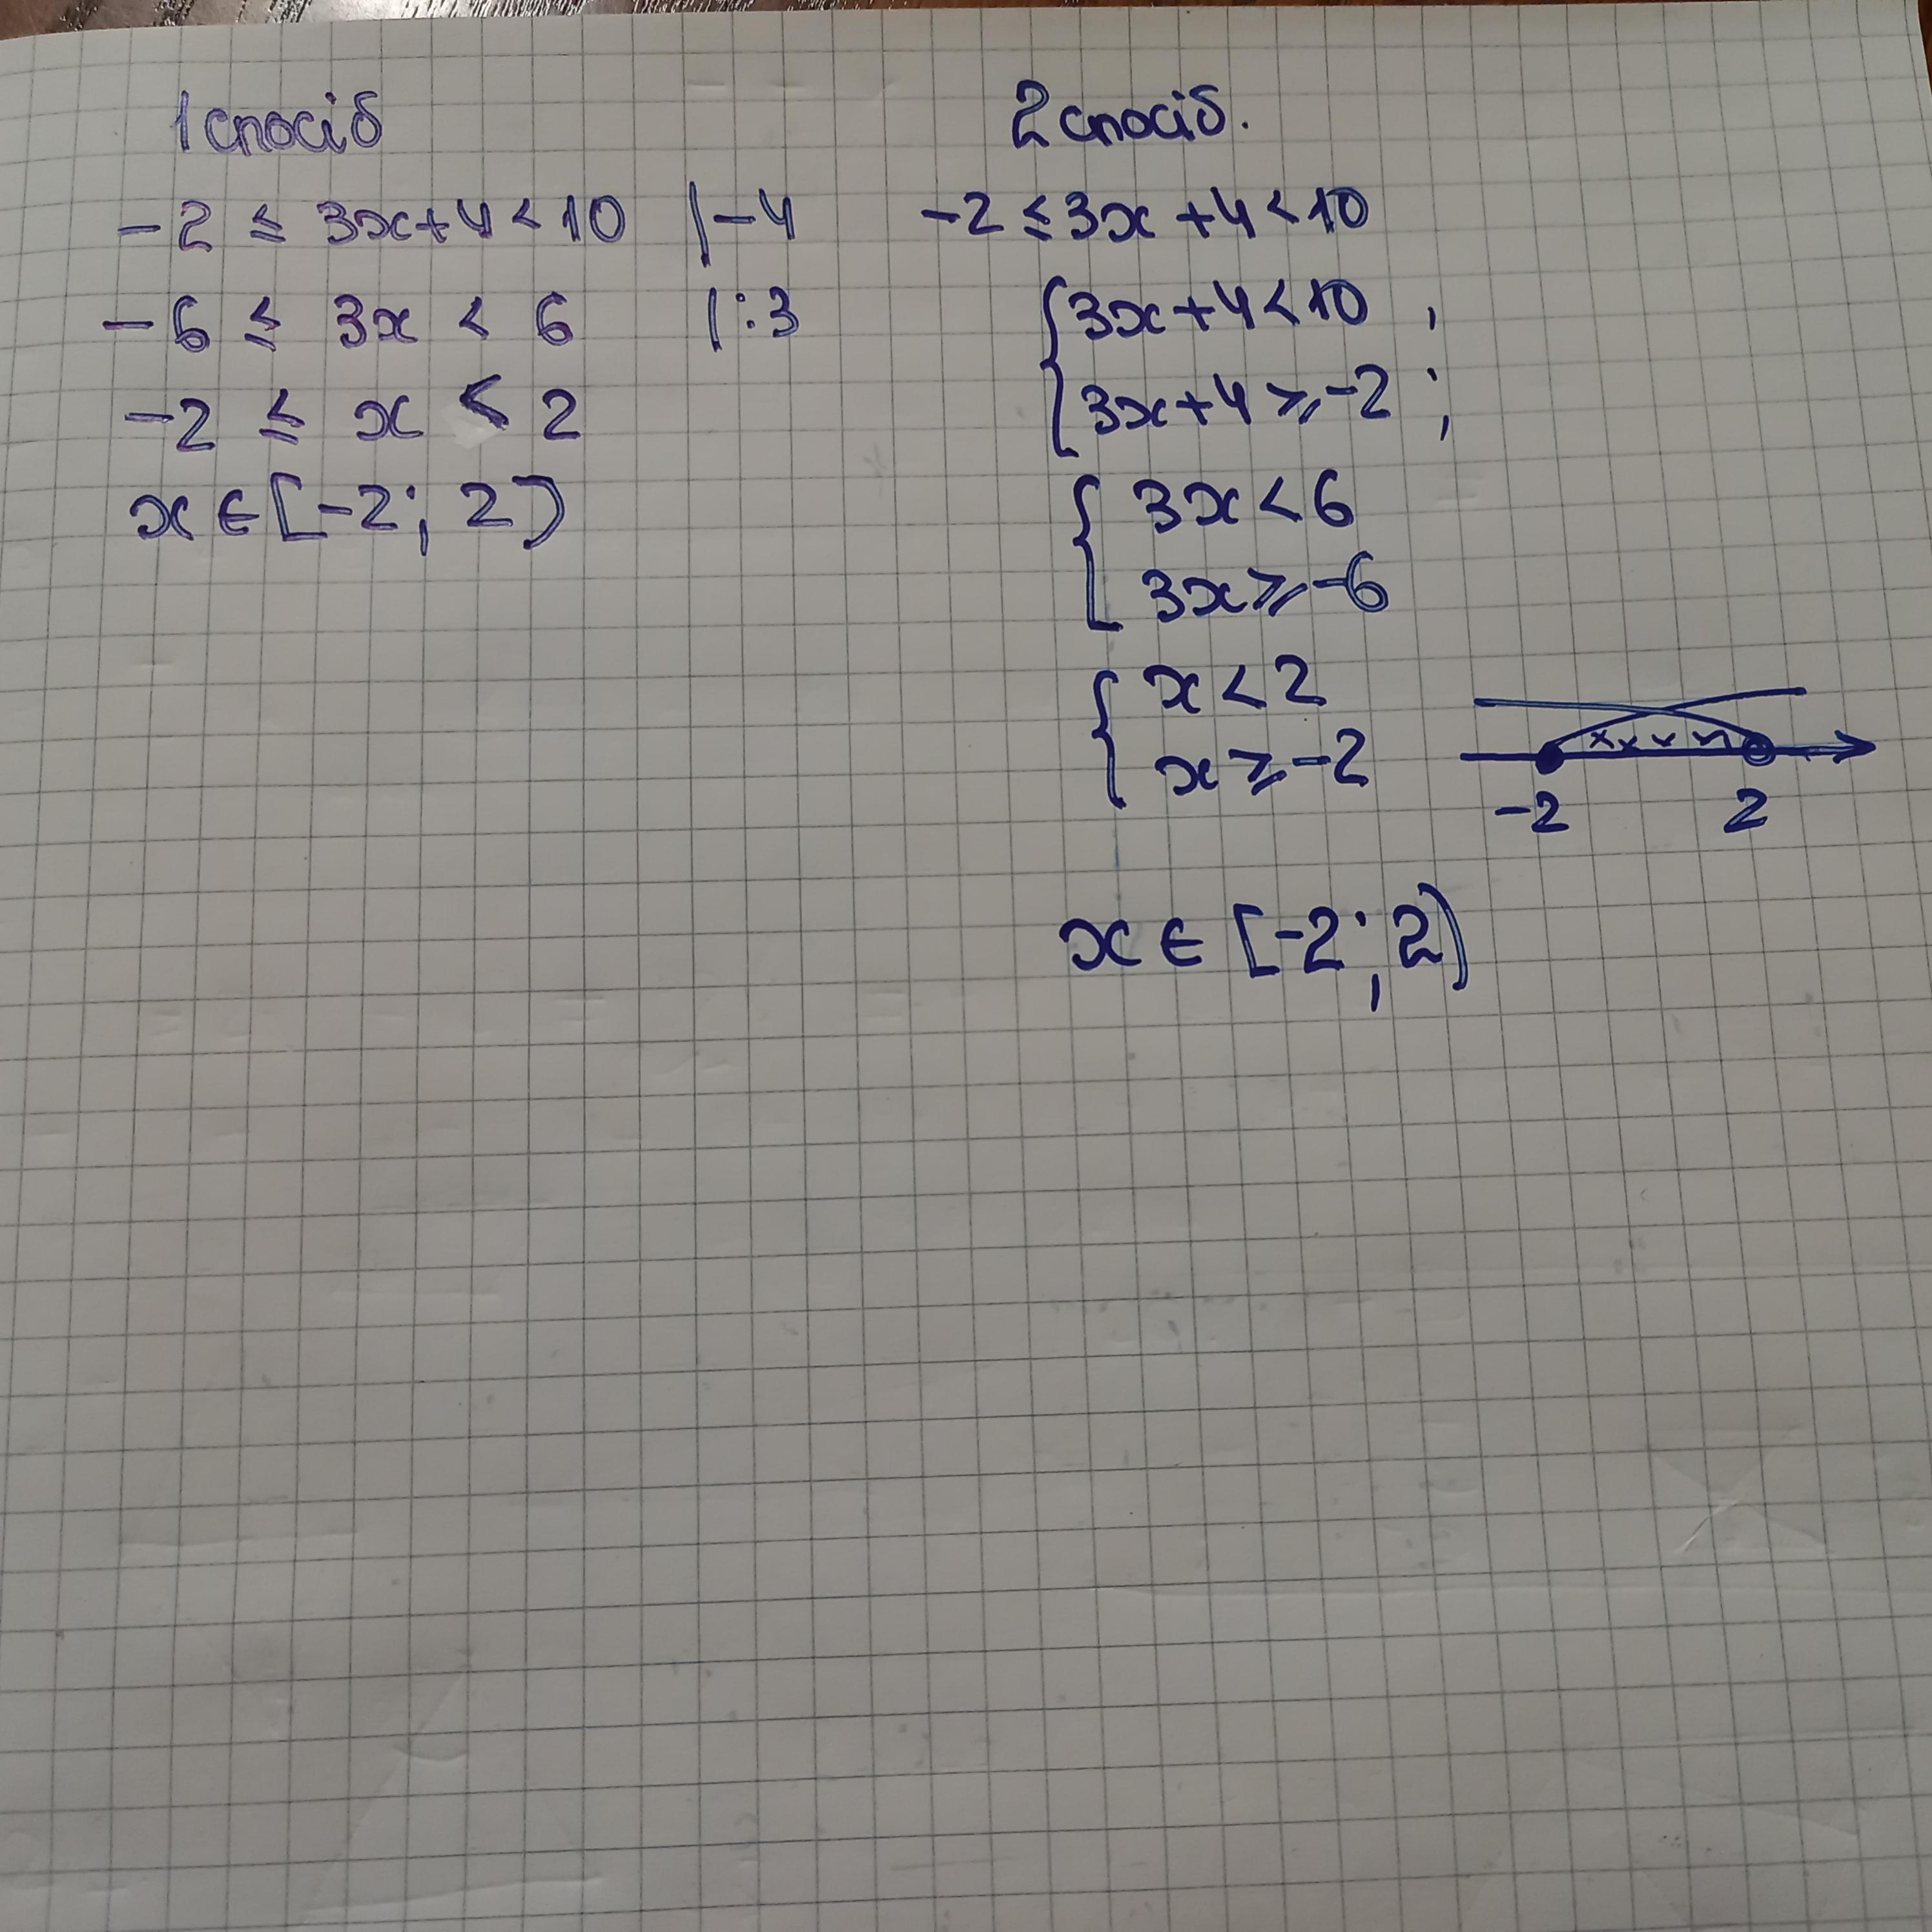 1 спосіб
-2 ≤ 3x+4 < 10 |-4
-6 ≤ 3x < 6 |:3
-2 ≤ x < 2
x ∈ [-2; 2)
2 спосіб.
-2 ≤ 3x + 4 < 10
{ 3x + 4 < 10 ,
3x + 4 ⩾ -2 ;
{ 3x < 6
3x ⩾ -6
{ x < 2
x ⩾ -2
-2 2
x ∈ [-2; 2)